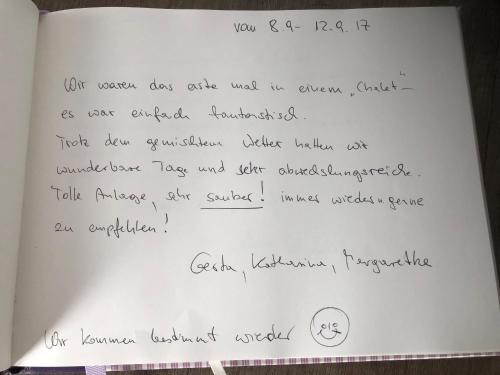 von 8.9 - 12.9.17
Wir waren das erste mal in einem „Chalet“ -
es war einfach fantastisch.
Trotz dem gemischtem Wetter hatten wir
wunderbare Tage und sehr abwechslungsreiche.
Tolle Anlage, sehr sauber! immer wieder gerne
zu empfehlen!
Gerta, Katharina, Margaretha
Wir kommen bestimmt wieder